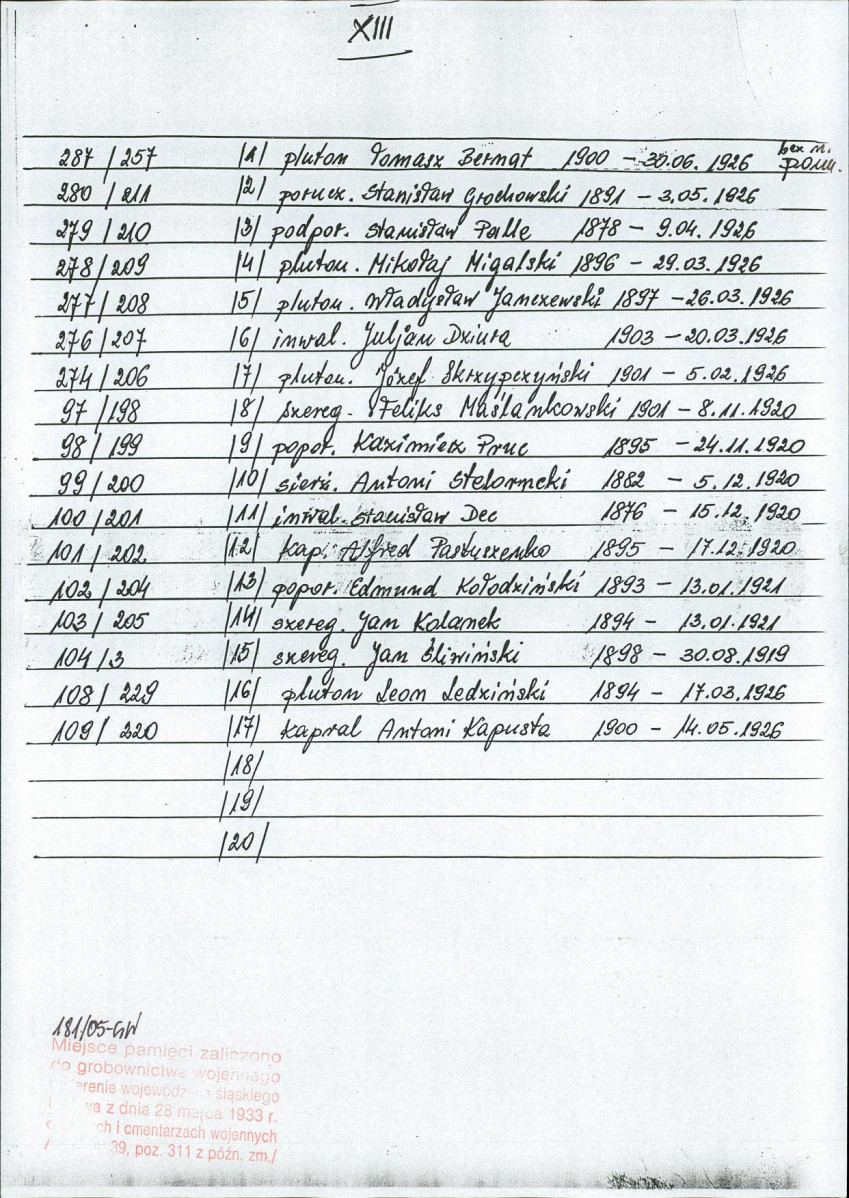 XIII
287/257 /1/ pluton Tomasz Bernat 1900 – 30.06.1926 bez n. pom.
280/211 /2/ porucz. Stanisław Grochowski 1891 – 3.05.1926
279/210 /3/ podpor. Stanisław Palle 1878 – 9.04.1926
278/209 /4/ pluton. Mikołaj Migalski 1896 – 29.03.1926
277/208 /5/ pluton. Władysław Janczewski 1897 – 26.03.1926
276/207 /6/ inwal. Juljan Dziura 1903 – 20.03.1926
274/206 /7/ pluton. Józef Skrzypczyński 1901 – 5.02.1926
97/198 /8/ szereg. Feliks Maślankowski 1901 – 8.11.1920
98/199 /9/ popor. Kazimierz Pruc 1895 – 24.11.1920
99/200 /10/ sierż. Antoni 1882 – 5.12.1920
100/201 /11/ inwal. Stanisław Dec 1876 – 15.12.1920
101/202 /12/ kap. Alfred Pastuszenko 1895 – 17.12.1920
102/204 /13/ popor. Edmund Kołodziński 1893 – 13.01.1921
103/205 /14/ szereg. Jan Kolanek 1894 – 13.01.1921
104/3 /15/ szereg. Jan Śliwiński 1898 – 30.08.1919
108/229 /16/ pluton Leon Ledziński 1894 – 17.03.1926
109/220 /17/ kapral Antoni Kapusta 1900 – 14.05.1926
/18/
/19/
/20/
181/05-GW
Miejsce pamięci zaliczono
do grobownictwa wojennego
województwa śląskiego
z dnia 28 marca 1933 r.
i cmentarzach wojennych
39, poz. 311 z późn. zm./